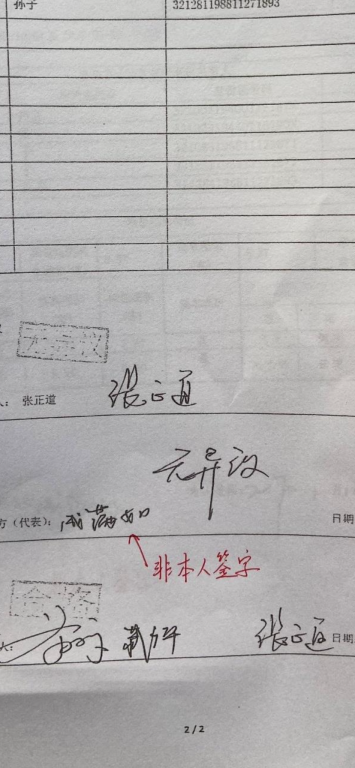 孙子 321281198811271893
无异议
人： 张正道 张正道
无异议
方（代表）： 成满如 日期
非本人签字
合格
人： 张正道 日期
2 / 2